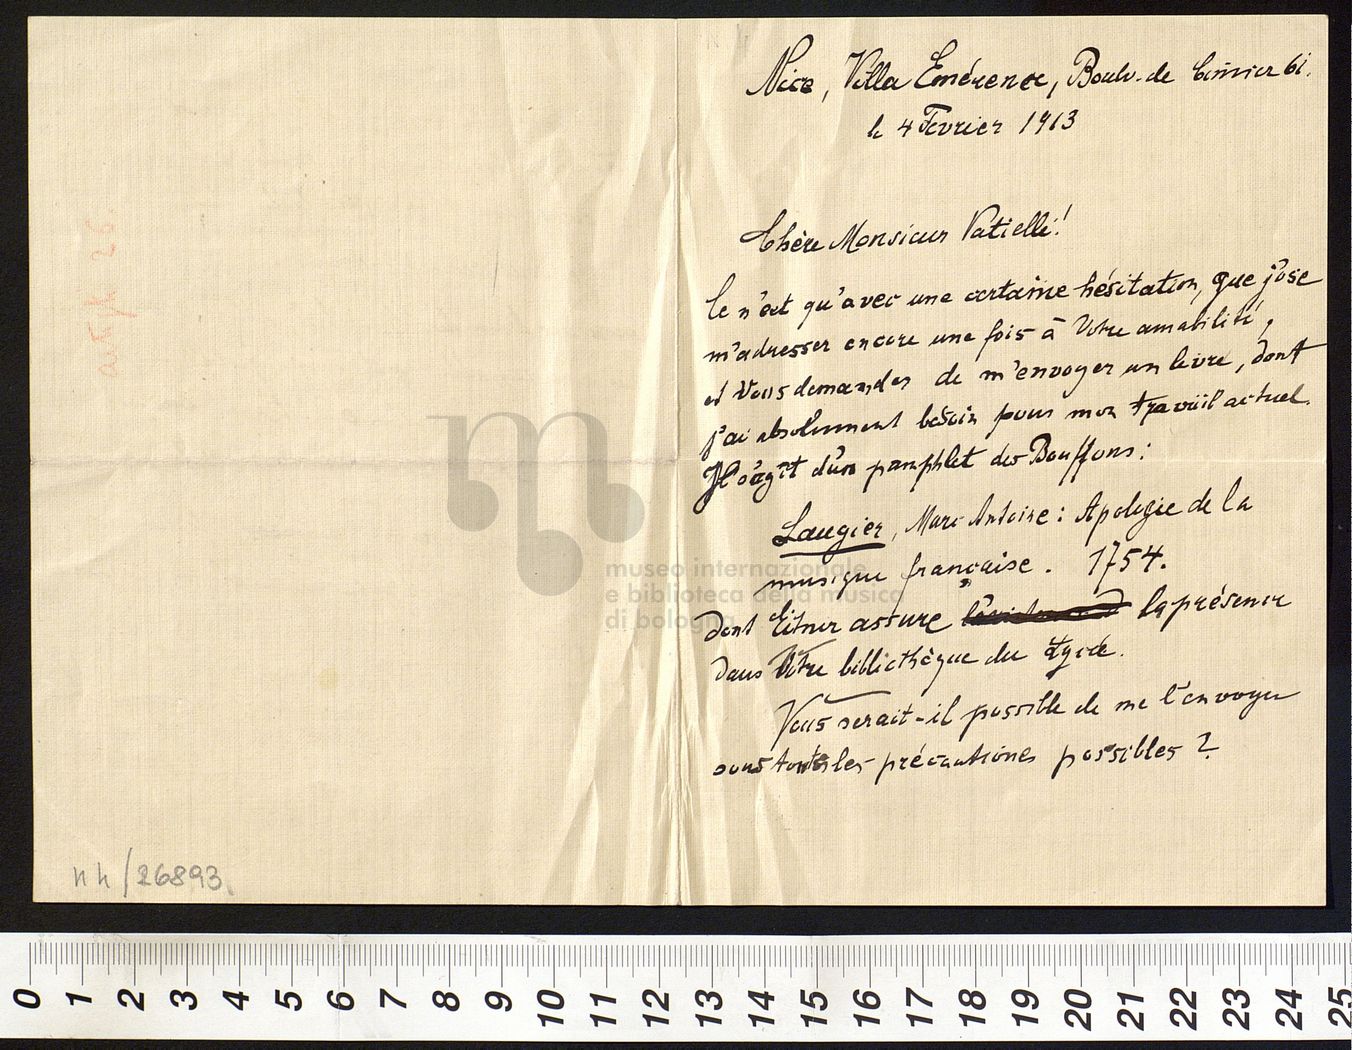 Nice, Villa Emérence, Boulv. de Cimiez 61.
le 4 Fevrier 1913
Chère Monsieur Vatielli!
Ce n'est qu'avec une certaine hésitation, que j'ose
m'adresser encore une fois à Votre amabilité,
et Vous demander de m'envoyer un livre, dont
j'ai absolument besoin pour mon travail actuel.
Il s'agit d'un pamphlet des Bouffons:
Laugier, Marc Antoine: Apologie de la
musique française. 1754.
dont Eitner assure la présence
dans Votre bibliothèque du Lycée.
Vous serait-il possible de me l'envoyer
sous toutes les précautions possibles?
nh/26893.
museo internazionale
e biblioteca della musica
di bologna
0 1 2 3 4 5 6 7 8 9 10 11 12 13 14 15 16 17 18 19 20 21 22 23 24 25